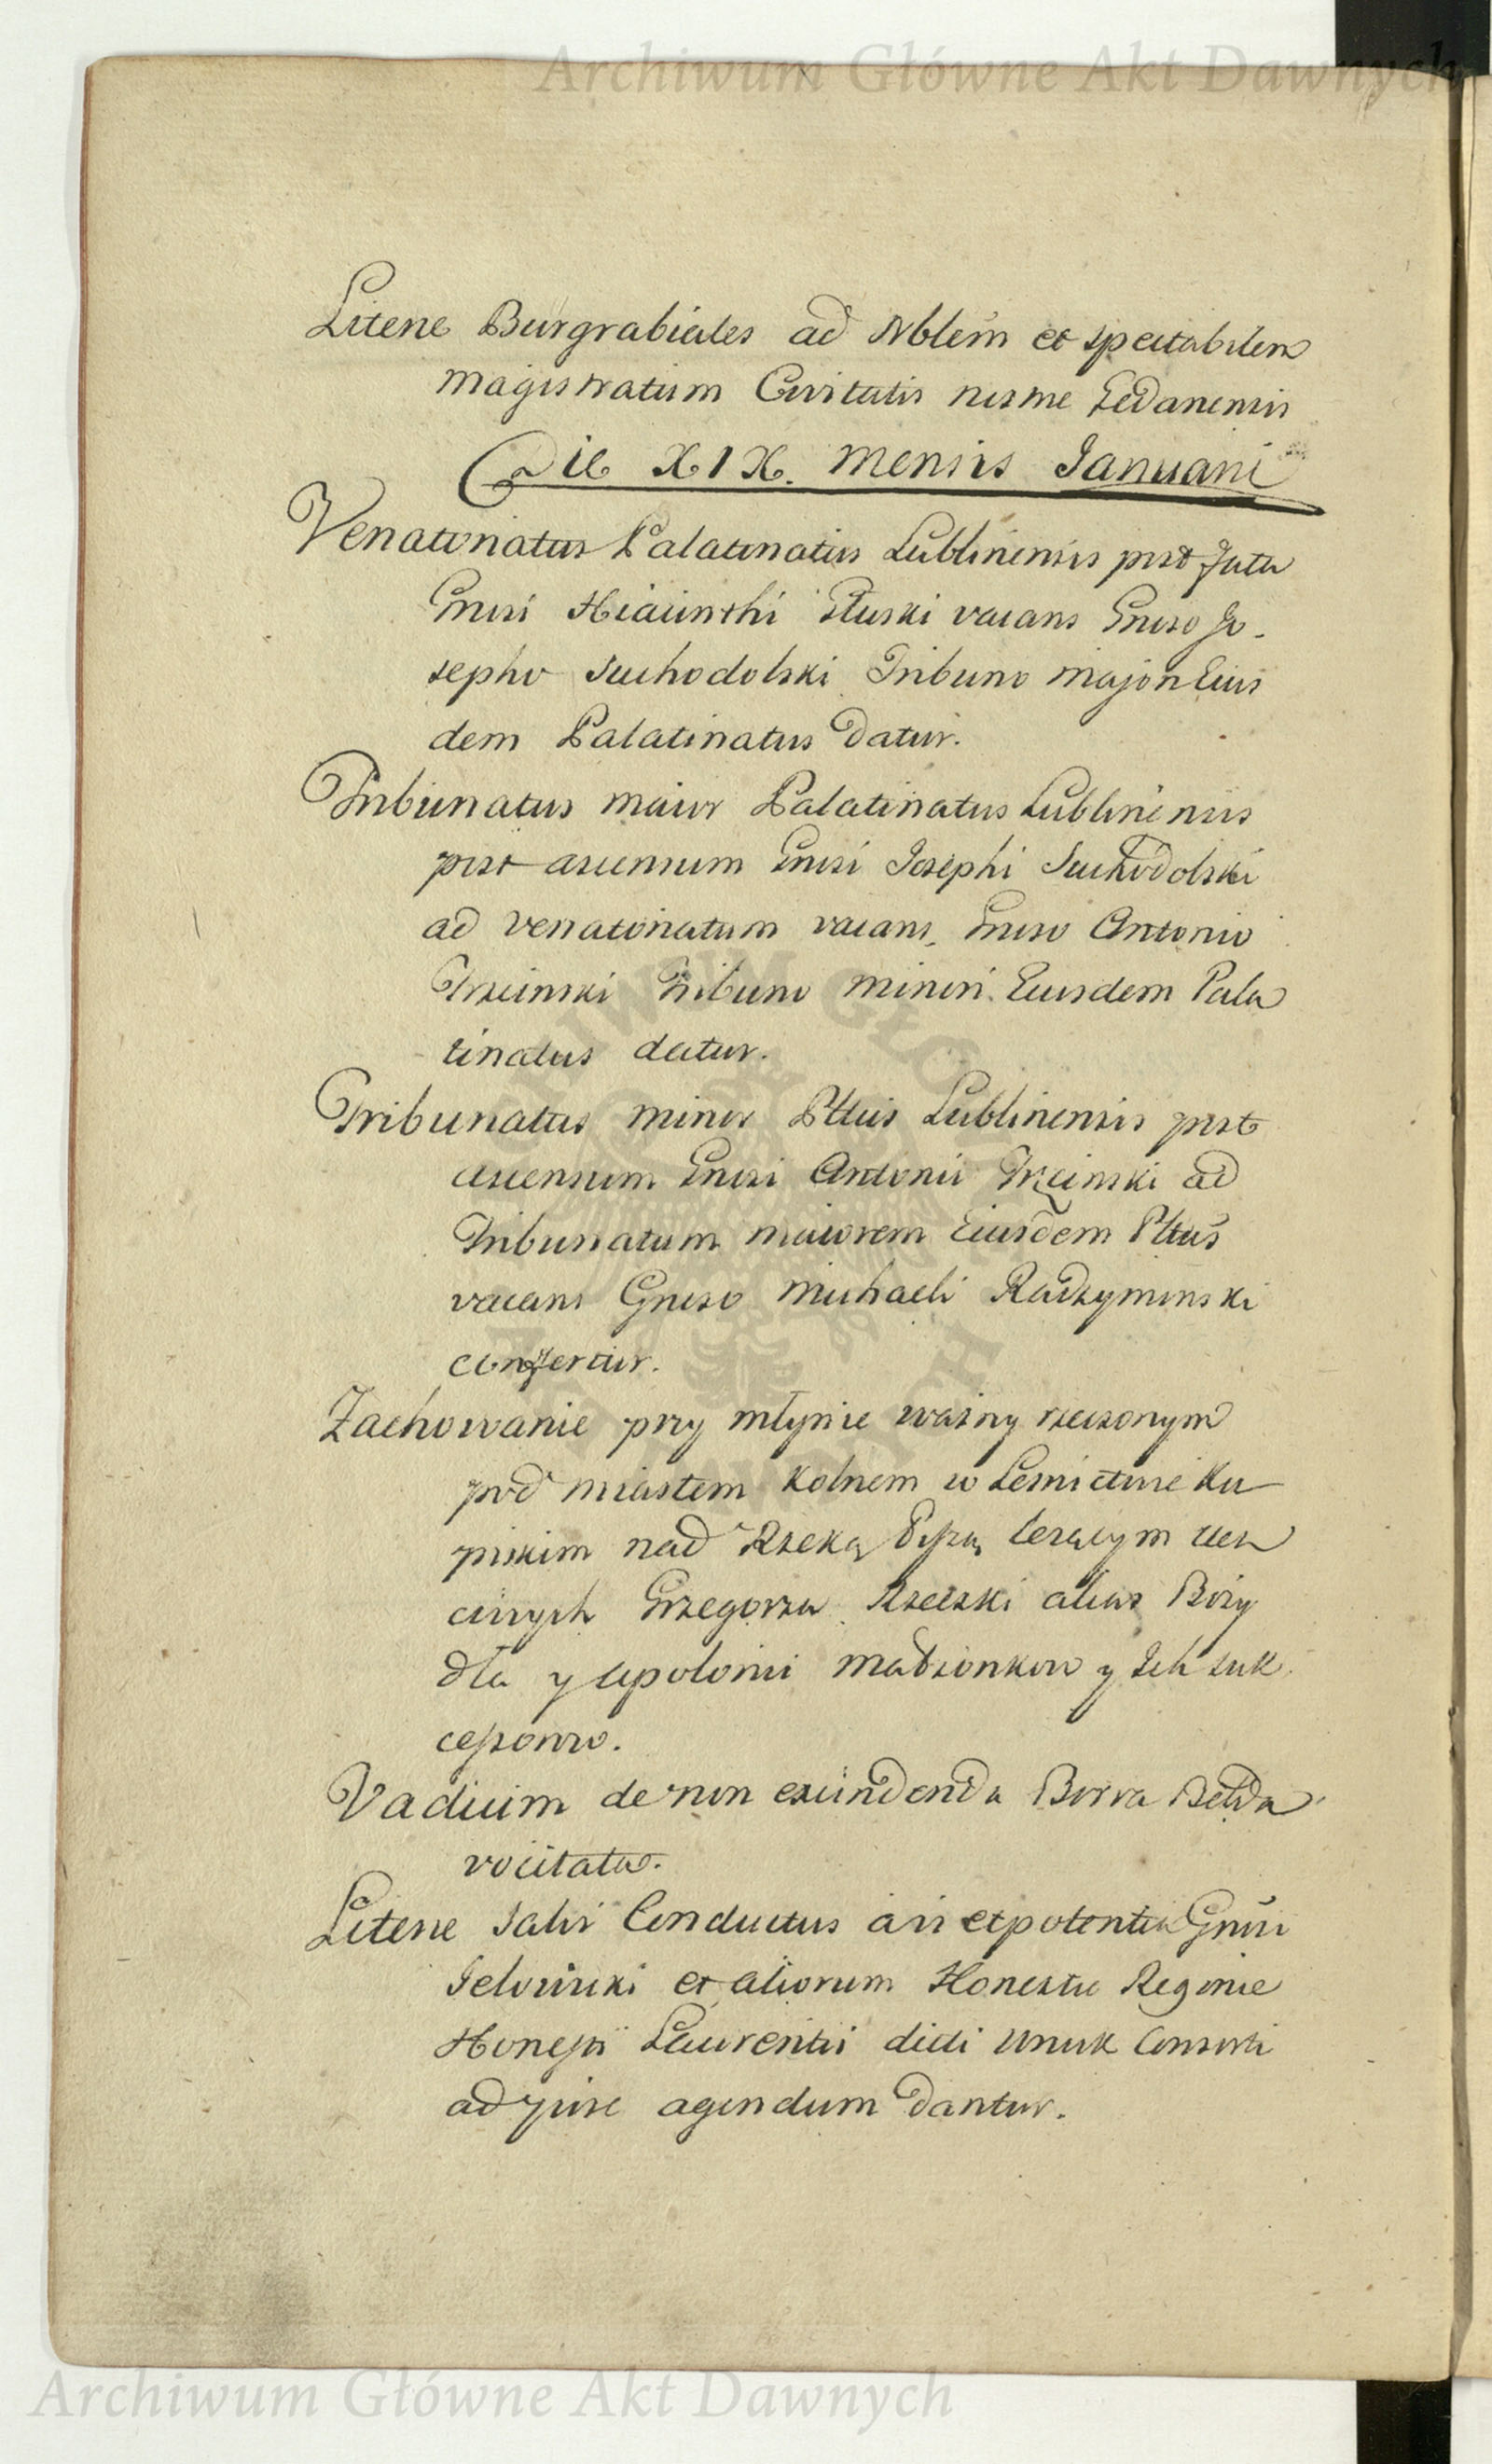 Archiwum Główne Akt Dawnych
Literae Burgrabiales ad Nblem et spectabilem
magistratum Civitatis nrsme Gedanensis
Die XIX. mensis Januarii
Venatoriatus Palatinatus Lublinensis post fata
Gnrsi Hiacinthi Słuski vacans Gnrso Jo-
sepho Suchodolski Tribuno majori Eius
dem Palatinatus datur.
Tribunatus maior Palatinatus Lublinensis
post ascensum Gnrsi Josephi Suchodolski
ad venatoriatum vacans, Gnrso Antonio
Trzcinski Tribuno minori Eiusdem Pala
tinatus datur.
Tribunatus minor Plttus Lublinensis post
ascensum Gnrsi Antonii Trzcinski ad
Tribunatum maiorem Eiusdem Plttus
vacans Gnrso Michaeli Radzyminski
confertur.
Zachowanie przy młynie rzeczonym
pod miastem Kolnem w Lesnictwie Ku
piskim nad Rzeką Pissą lezącym ucz
ciwych Grzegorza Rzeczki alias Bozy
dla y Apolonii małzonkow y Ich suk
cessorow.
Vadium de non exscindenda Borra Belda
vocitata.
Literae Salvi Conductus a vi et potentia Gnrsi
et aliorum Honestae Reginae
Honesti Laurentii dicti Wnuk Consorti
ad jure agendum dantur.
Archiwum Główne Akt Dawnych